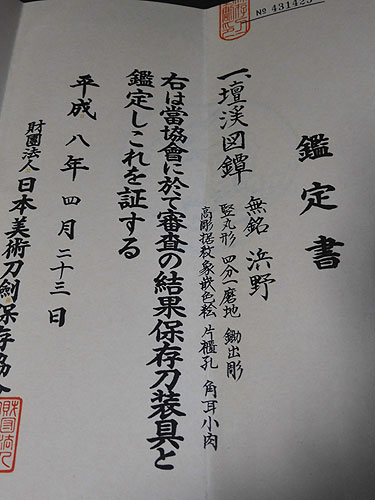 № 431425
鑑定書
一、壇渓図鐔
無銘 浜野
竪丸形 四分一磨地 鋤出彫
高彫据紋象嵌色絵 片櫃孔 角耳小肉
右は當協會に於て審査の結果保存刀装具と
鑑定しこれを証する
平成八年四月二十三日
財團法人日本美術刀劍保存協